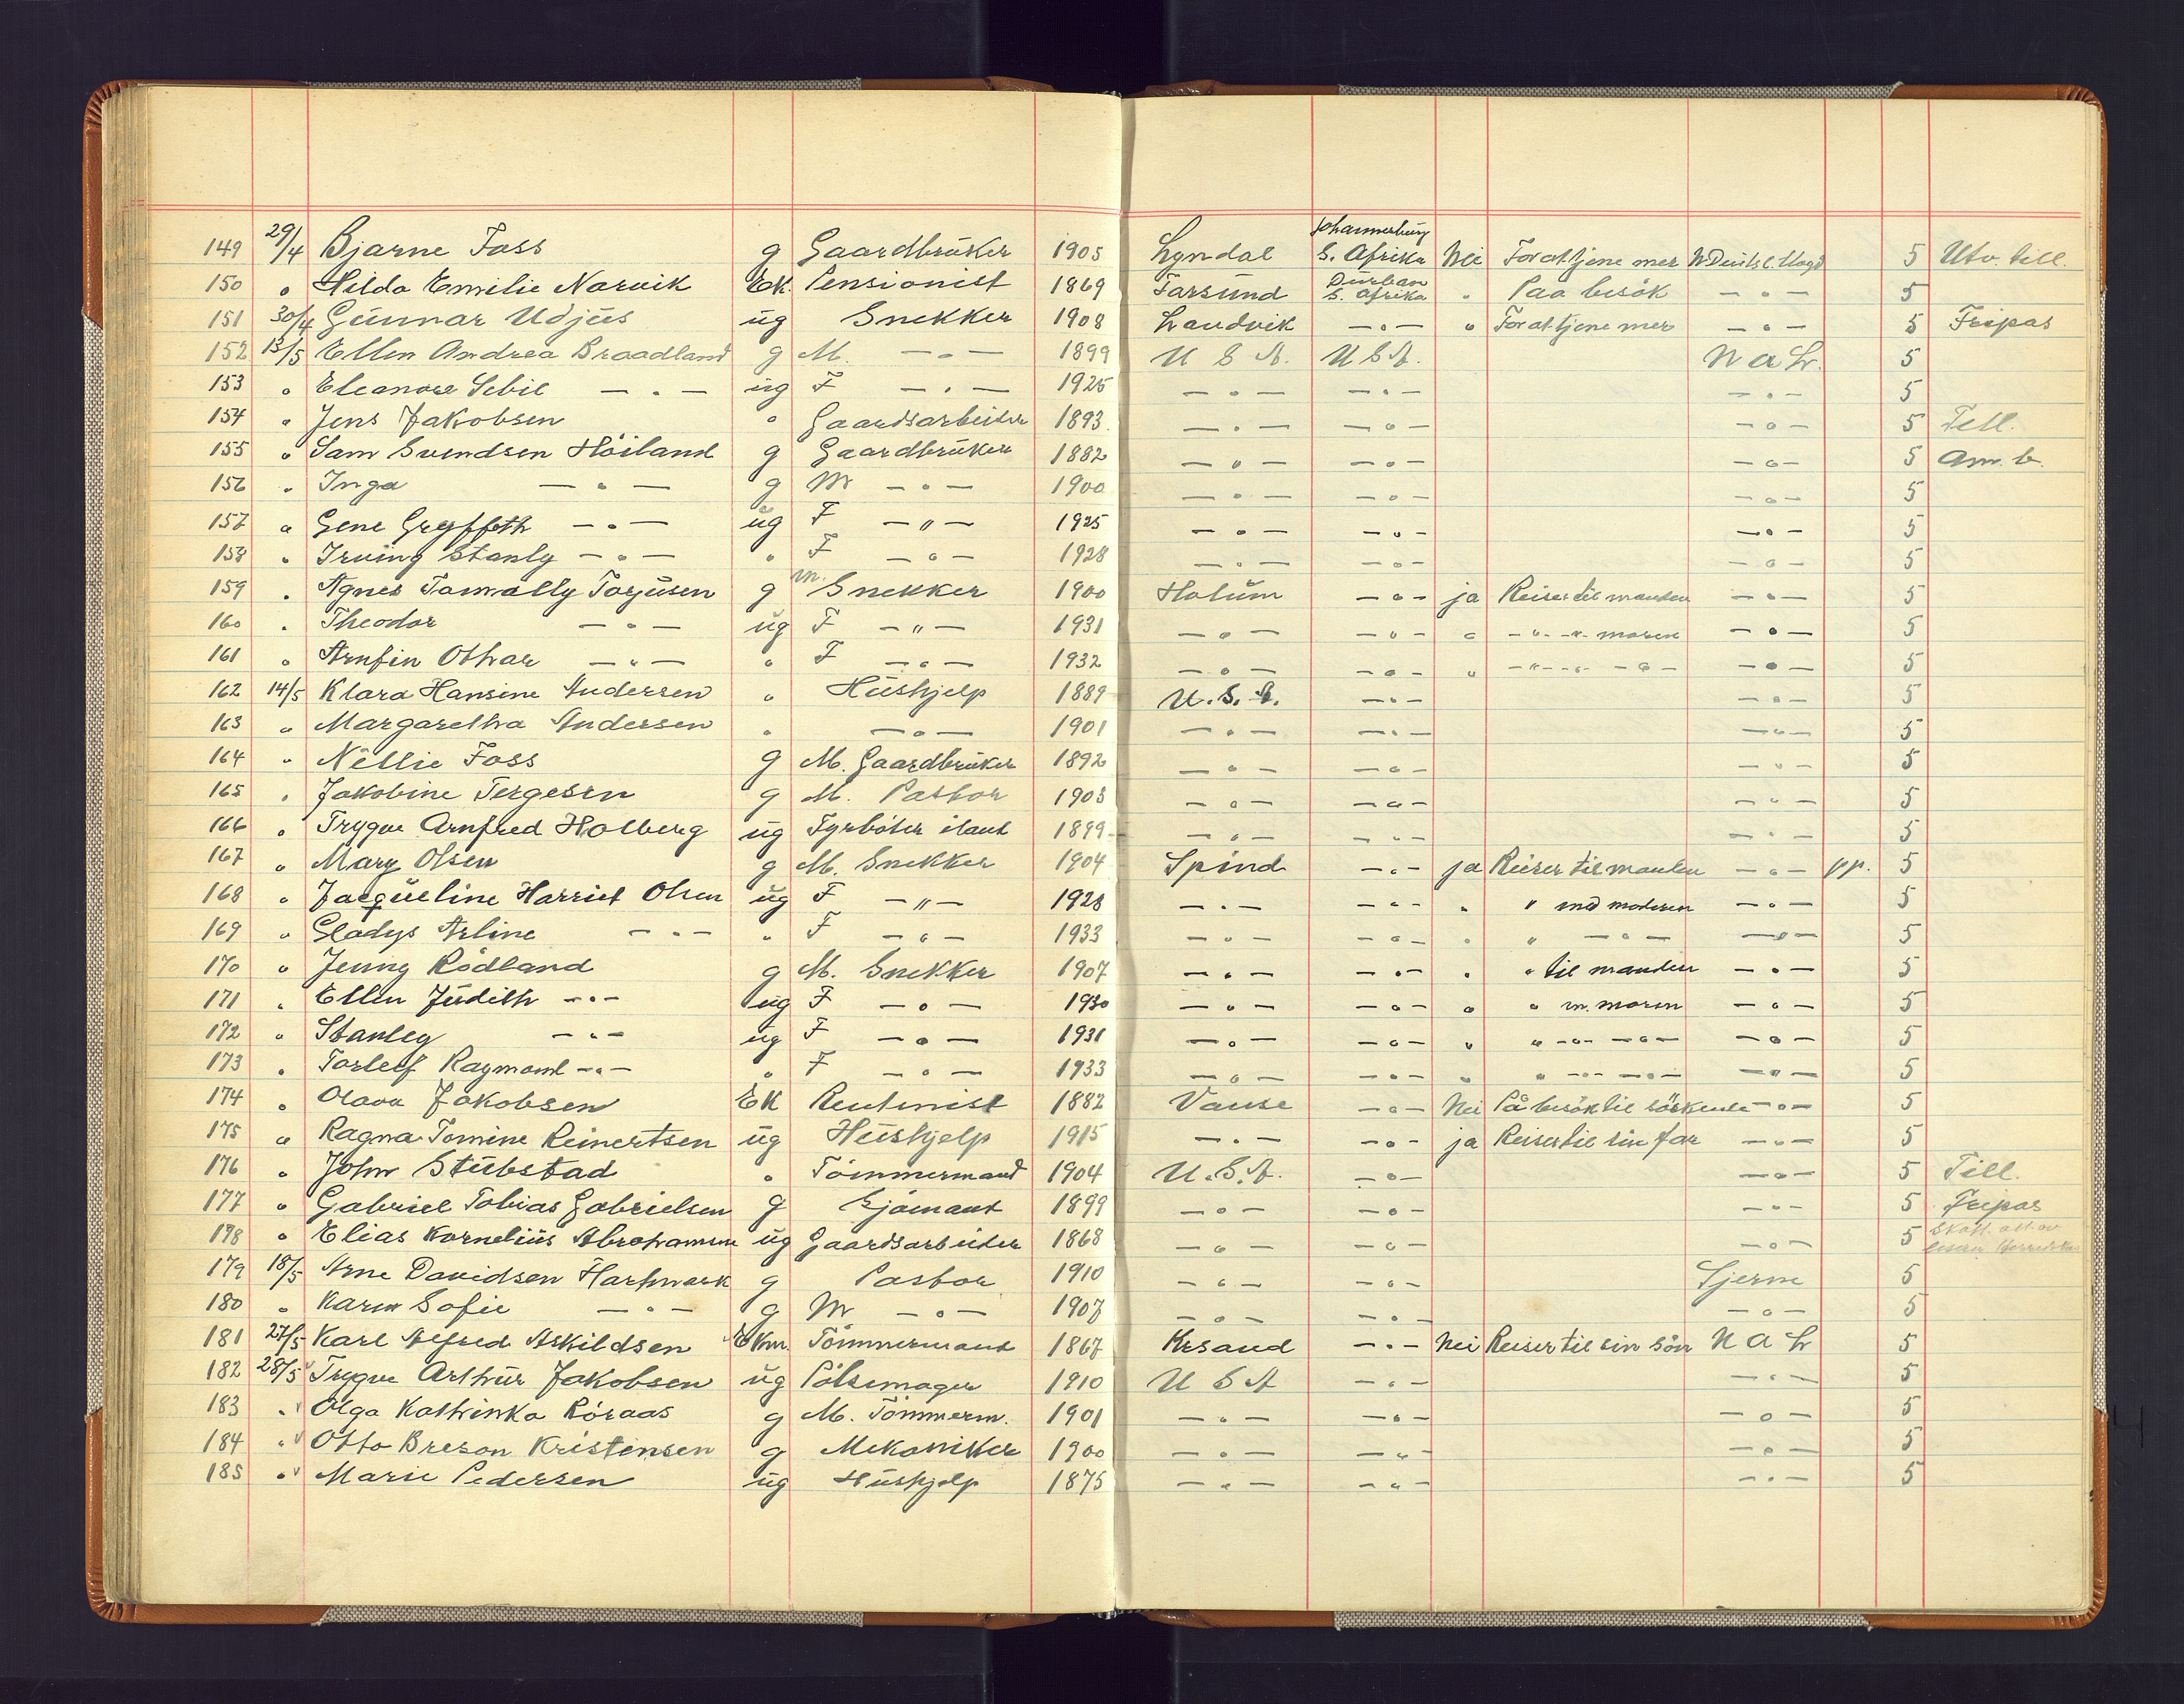 149 29/4 Bjarne Foss g Gaardbrüker 1905 Lyndal Johannesburg S. Afrika Nei For at tjene mer 5 Utv. till.
150 " Hilda Emilie Narvik Ek. Pensionist 1869 Farsund Durban S. Afrika " Paa besök — " — 5
151 30/4 Gunnar Udjus ug Snekker 1908 Landvik — " — " For at tjene mer — " — 5 Fripas
152 13/5 Ellen Andrea Braadland g M. — " — 1899 U S A. U S A. N a L. 5
153 " Eleanore Sebie — " — ug F — " — 1925 — " — — " — — " — 5
154 " Jens Jakobsen " Gaardsarbeider 1893 — " — — " — — " — 5 Till.
155 " Sam Svendsen Höiland g Gaardbrüker 1882 — " — — " — — " — 5 Am. b.
156 " Inga — " — g M — " — 1900 — " — — " — — " — 5
157 " Gene Gryffeth — " — ug F — " — 1925 — " — — " — — " — 5
158 " Irving Stanly — " — " F — " — 1928 — " — — " — — " — 5
159 " Agnes Tomally Torjusen g M. Snekker 1900 Holum — " — ja Reiser til manden — " — 5
160 " Theodor — " — ug F — " — 1931 — " — — " — " — " — " — moren — " — 5
161 " Arnfin Othar — " — " F — " — 1932 — " — — " — " — " — " — " — — " — 5
162 14/5 Klara Hansine Andersen " Hushjelp 1889 U.S.A. — " — — " — 5
163 " Margaretha Andersen " — " — 1901 — " — — " — — " — 5
164 " Nellie Foss g M. Gaardbrüker 1892 — " — — " — — " — 5
165 " Jakobine Tergesen g M. Pastor 1903 — " — — " — — " — 5
166 " Trygve Arnfred Holberg ug Fyrböter ilant 1899 — " — — " — — " — 5
167 " Mary Olsen g M. Snekker 1904 Spind — " — ja Reiser til manden — " — pp. 5
168 " Jacqueline Harriet Olsen ug F — " — 1928 — " — — " — " " med moderen — " — 5
169 " Gladys Arline — " — " F — " — 1933 — " — — " — " " — " — — " — 5
170 " Jenny Rödland g M. Snekker 1907 — " — — " — " " til manden — " — 5
171 " Ellen Judith — " — ug F — " — 1930 — " — — " — " " m. moren — " — 5
172 " Stanley — " — ug F — " — 1931 — " — — " — " " — " — — " — — " — 5
173 " Torleif Raymond — " — " F — " — 1933 — " — — " — " " — " — — " — — " — 5
174 " Olava Jakobsen EK Rentenist 1882 Vanse — " — Nei På besök til söskende — " — 5
175 " Ragna Tomine Reinertsen ug Hushjelp 1915 — " — — " — ja Reiser til sin far — " — 5
176 " John Stubstad " Tömmermand 1904 U.S.A. — " — — " — 5 Till.
177 " Gabriel Tobias Gabrielsen g Sjömant 1899 — " — — " — — " — 5 Fripas
178 " Elias Kornelius Abrahamsen ug Gaardsarbeider 1868 — " — — " — — " — 5 Skatt. att. av
179 18/5 Arne Davidsen Hartmark g Pastor 1910 — " — — " — Tjerne 5
180 " Karen Sofie — " — g M — " — 1907 — " — — " — — " — 5
181 27/5 Karl Alfred Askildsen Ekm. Tömmermand 1867 Krsand — " — Nei Reiser til sin sön N a L 5
182 28/5 v Trygve Arthur Jakobsen ug Pölsemager 1910 U S A — " — — " — 5
183 " v Olga Kathinka Röraas g M. Tömmerm. 1901 — " — — " — — " — 5
184 " v Otto Breson Kristensen g Mekaniker 1900 — " — — " — — " — 5
185 " v Marie Pedersen ug Hushjelp 1875 — " — — " — — " — 5